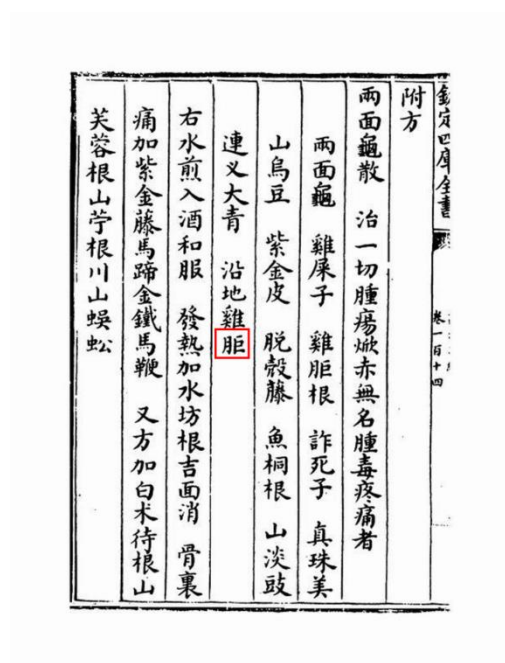 欽定四庫全書
卷一百十四
附方
兩面龜散 治一切腫瘍焮赤無名腫毒疼痛者
兩面龜 雞屎子 雞 根 詐死子 真珠美
山烏豆 紫金皮 脱殼藤 魚桐根 山淡豉
連义大青 沿地雞
右水煎入酒和服 發熱加水坊根吉面消 骨裏
痛加紫金藤馬蹄金鐵馬鞭 又方加白术待根山
芙蓉根山苧根川山蜈蚣